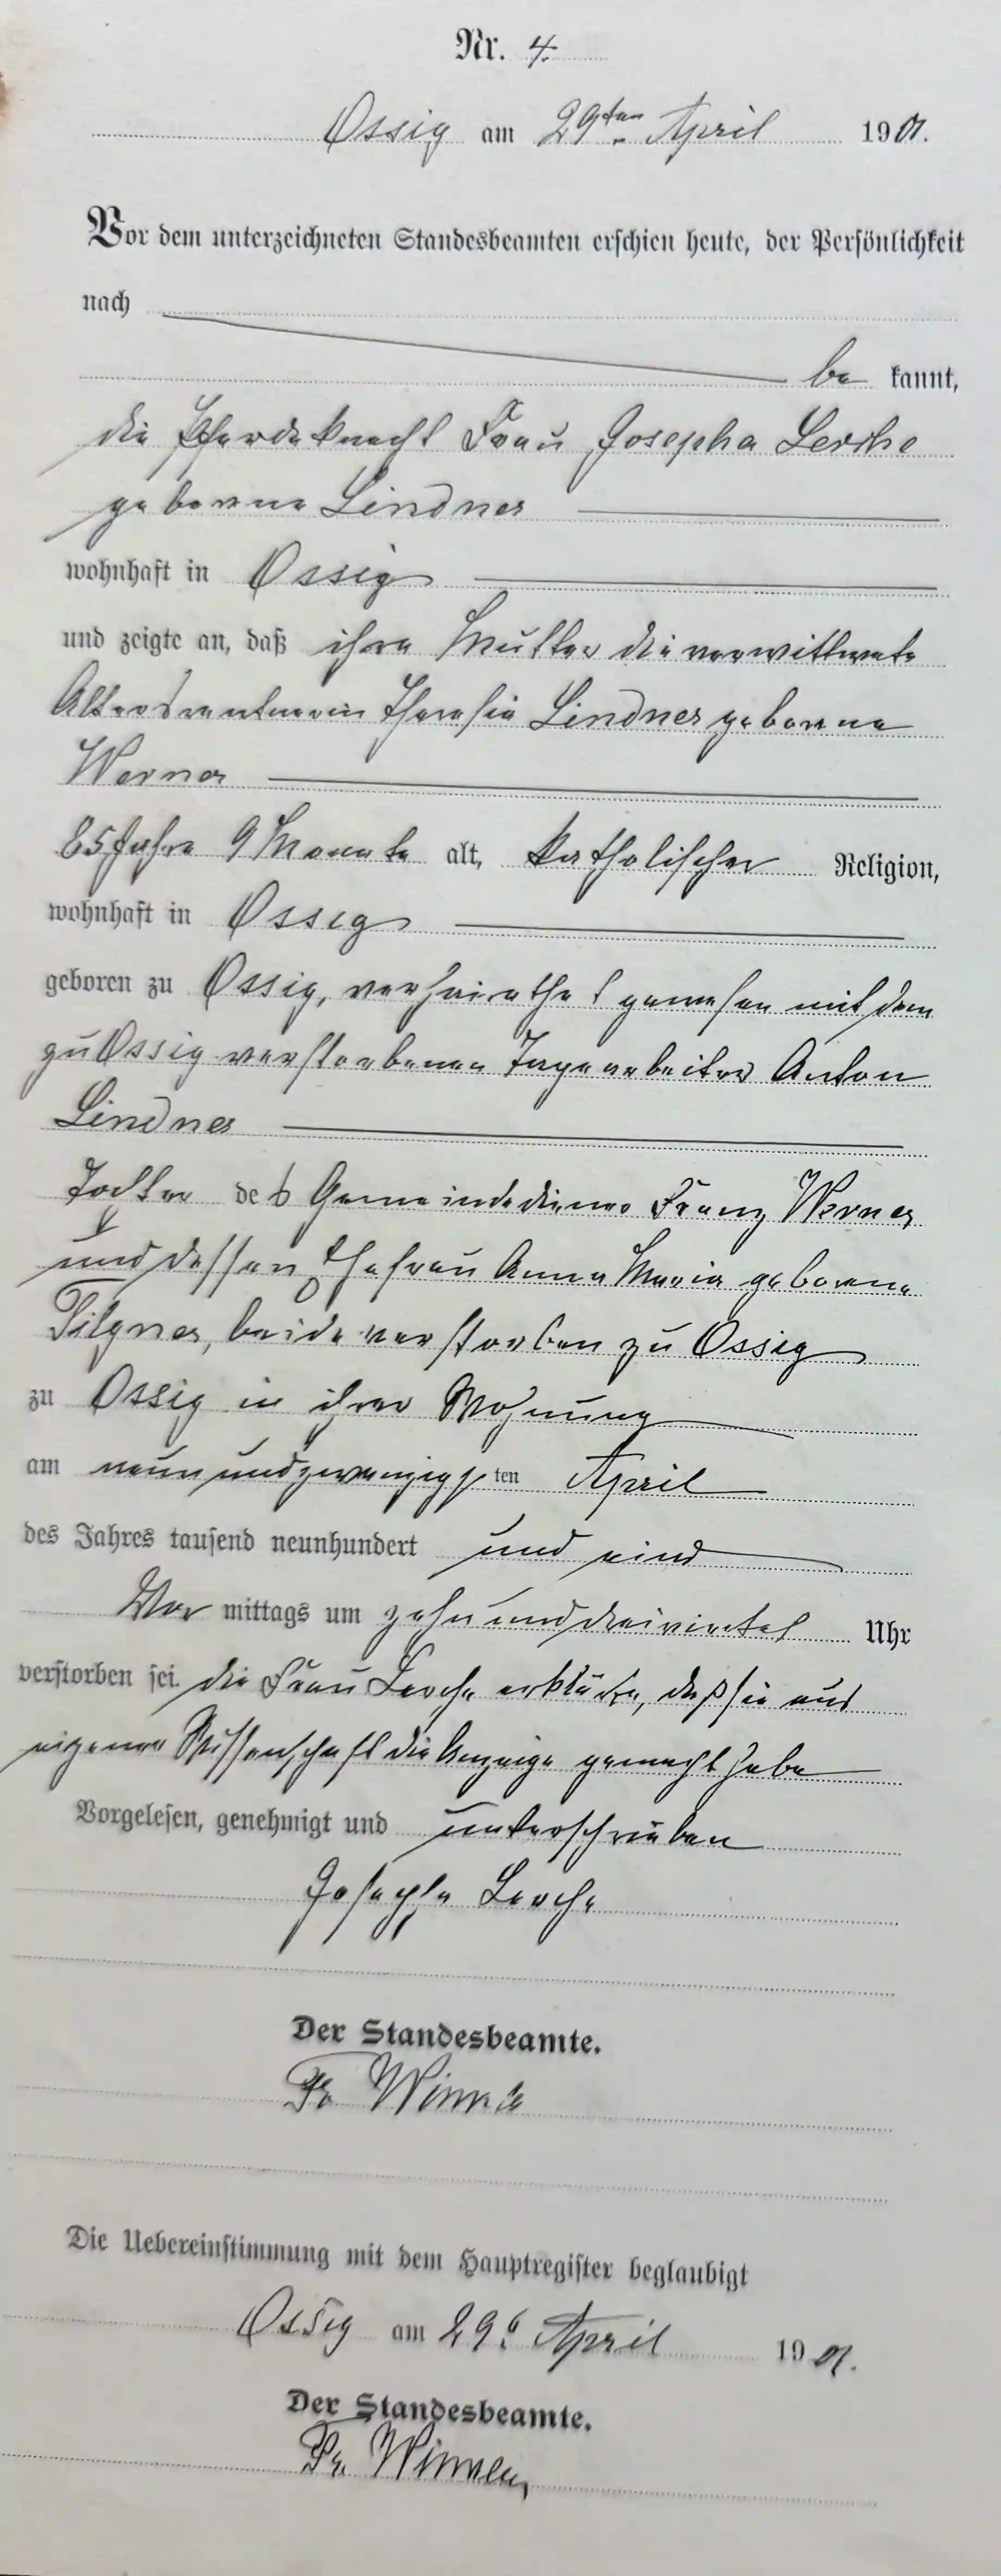 Nr. 4.
Ossig am 29ten April 1901.
Vor dem unterzeichneten Standesbeamten erschien heute, der Persönlichkeit
nach
be kannt,
die Pferdeknecht Frau Josepha Lerche
geborene Lindner
wohnhaft in Ossig
und zeigte an, daß ihre Mutter die verwittwete
Altersrentnerin Theresia Lindner geborene
Werner
85 Jahre 9 Monate alt, katholischer Religion,
wohnhaft in Ossig
geboren zu Ossig, verheirathet gewesen mit dem
zu Ossig verstorbenen Tagearbeiter Anton
Lindner
Tochter des Gemeindediener Franz Werner
und dessen Ehefrau Anna Maria geborene
Pilgner, beide verstorben zu Ossig
zu Ossig in ihrer Wohnung
am neunundzwanzigsten April
des Jahres tausend neunhundert und eins
Vor mittags um zehn und dreiviertel Uhr
verstorben sei. die Frau Lerche erklärte, daß sie aus
eigener Wissenschaft die Anzeige gemacht habe
Vorgelesen, genehmigt und unterschrieben
Josepha Lerche
Der Standesbeamte.
Die Uebereinstimmung mit dem Hauptregister beglaubigt
Ossig am 29t April 1901.
Der Standesbeamte.